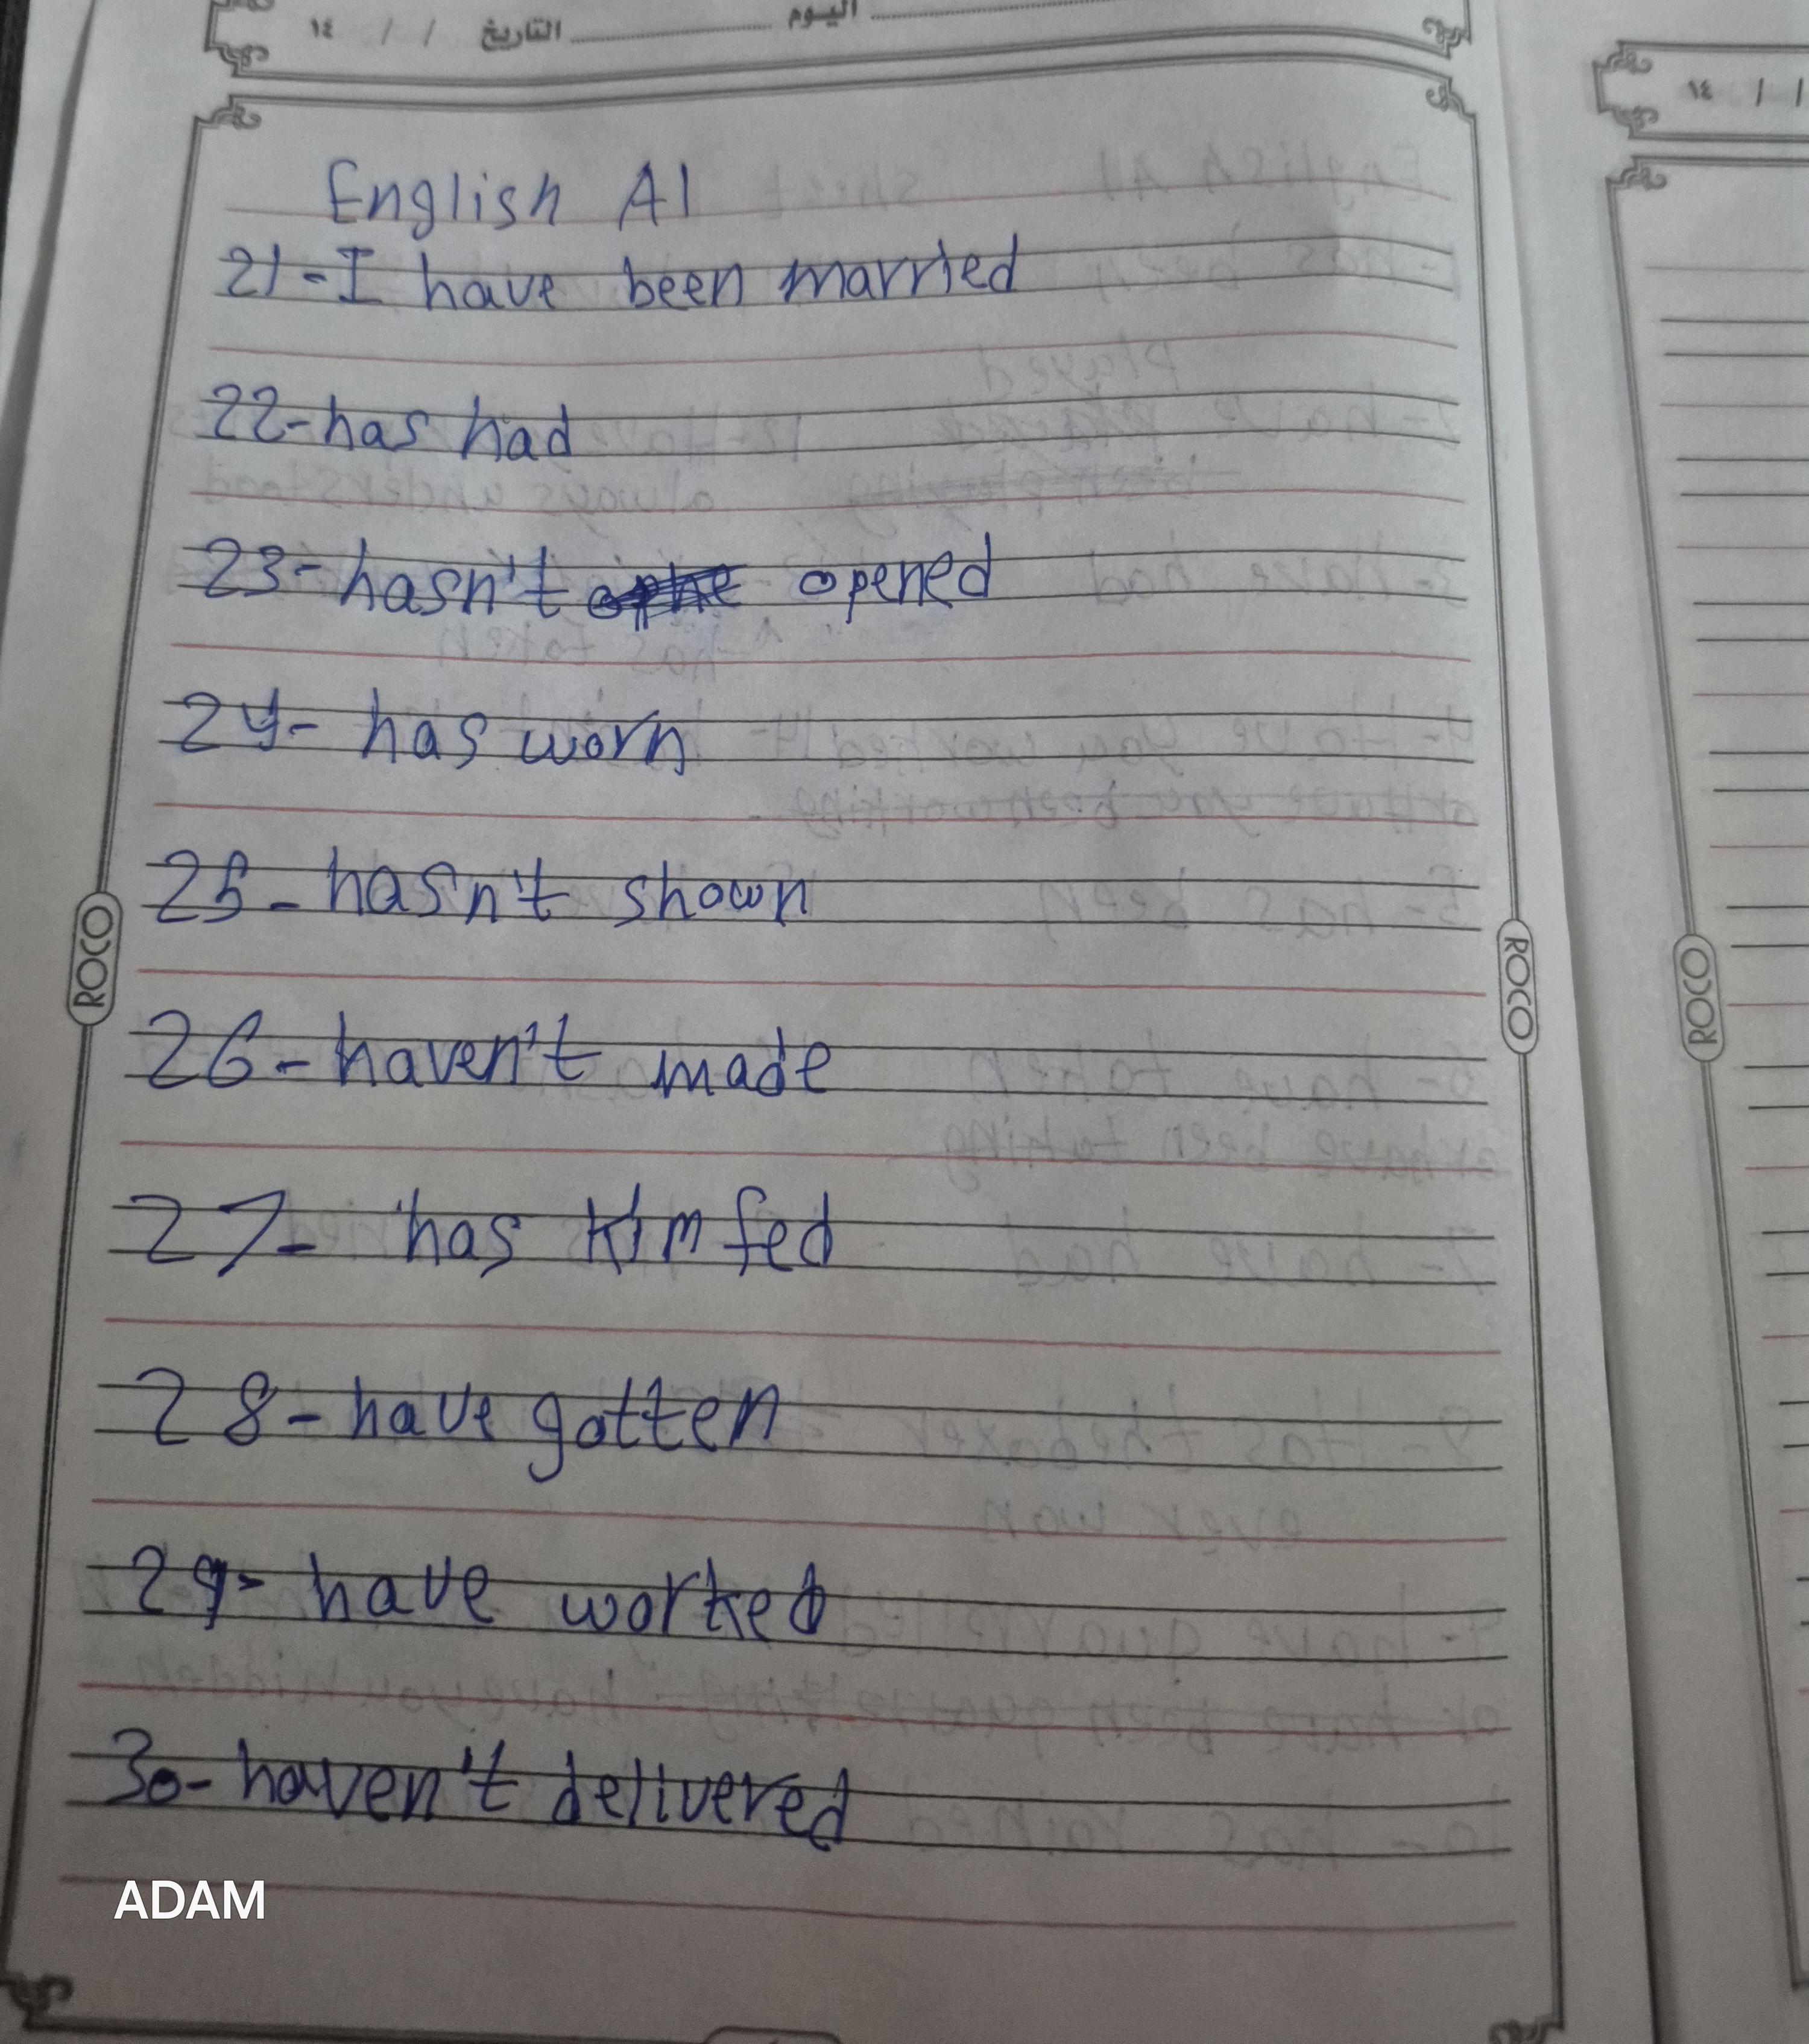 ١٤ / / التاريخ اليوم
١٤ / /
English A1
21-I have been married
22-has had
23-hasn't opened
24- has worn
25- hasn't shown
26- haven't made
27- has Kim fed
28- have gotten
29- have worked
30- haven't delivered
ROCO
ROCO
ROCO
ADAM